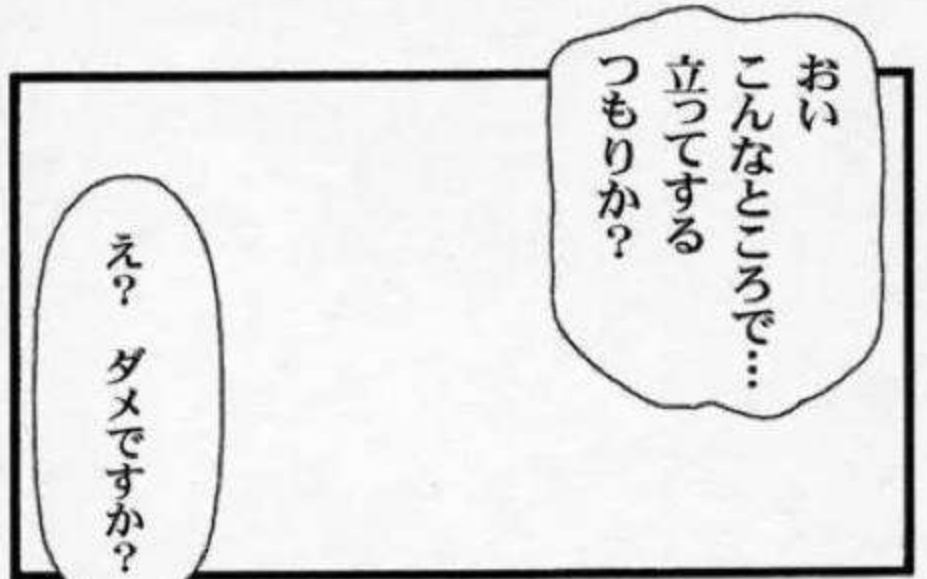 おい
こんなところで…
立ってする
つもりか？
え？　ダメですか？